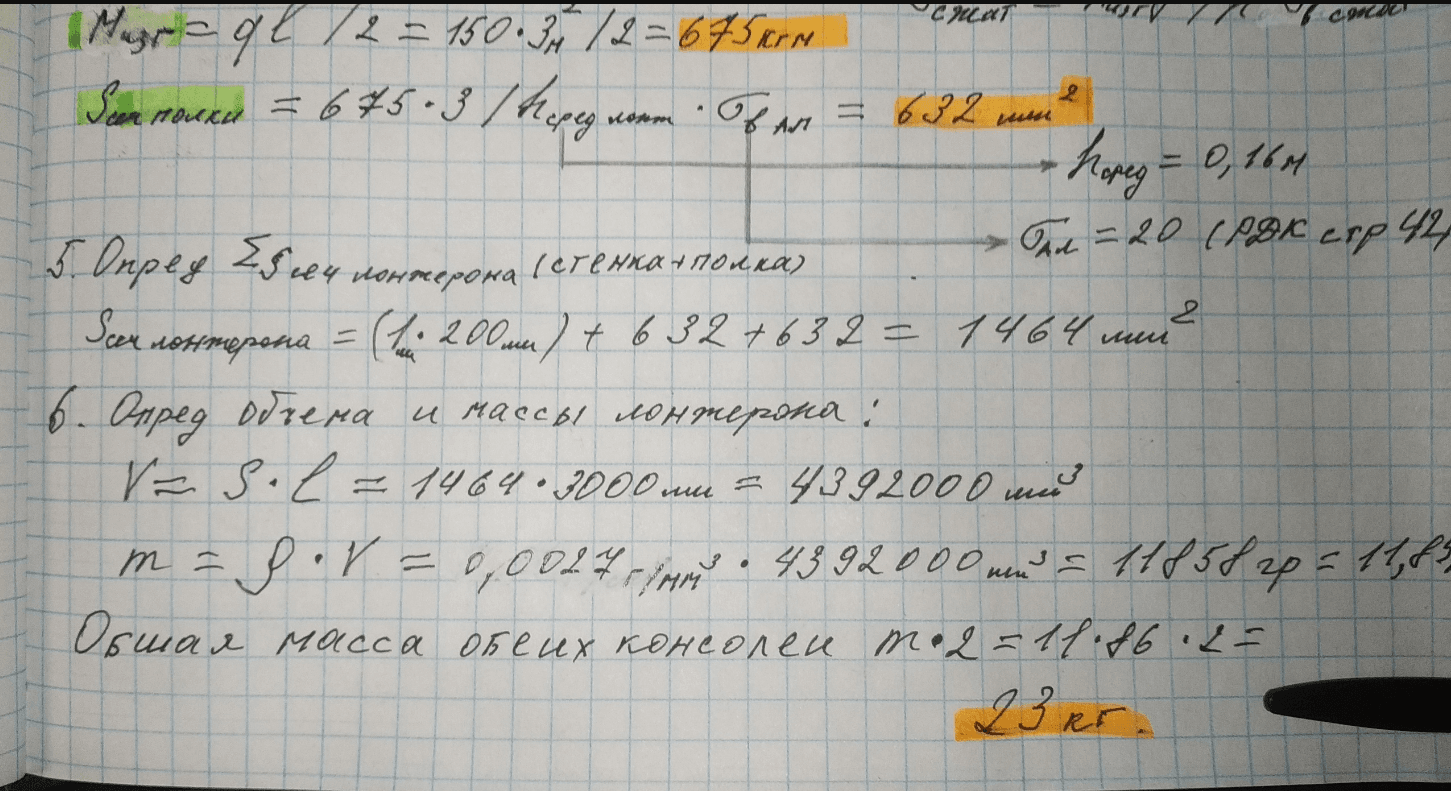 Mизг = ql² / 2 = 150 · 3м² / 2 = 675 кгм
Sсеч полки = 675 · 3 / hсред лонж · σв ал = 632 мм²
hсред = 0,16 м
σал = 20 (РДК стр 42)
5. Опред ΣSсеч лонжерона (стенка + полка)
Sсеч лонжерона = (1мм · 200мм) + 632 + 632 = 1464 мм²
6. Опред объема и массы лонжерона:
V = S · l = 1464 · 3000мм = 4392000 мм³
m = ρ · V = 0,0027 г/мм³ · 4392000 мм³ = 11858 гр = 11,85
Обшая масса обеих консолеи m · 2 = 11 · 86 · 2 =
23 кг.